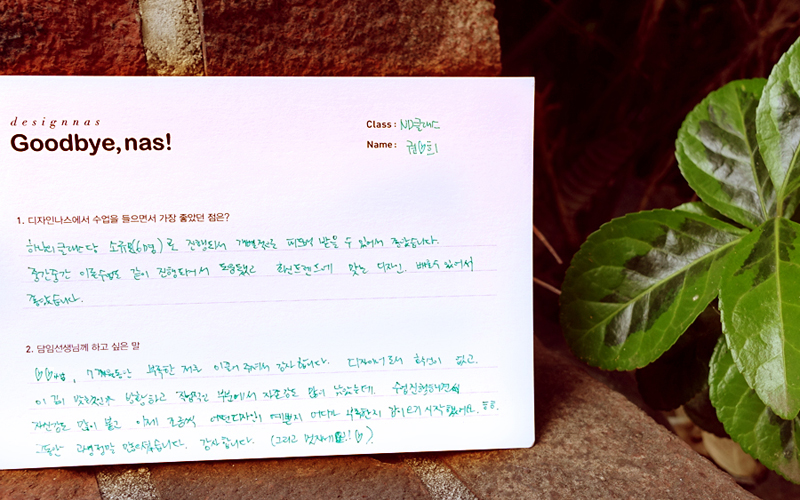 designnas
Goodbye, nas!
Class : ND클래스
Name : 권♡희
1. 디자인나스에서 수업을 들으면서 가장 좋았던 점은?
하나의 클래스당 소규모(6명)로 진행되서 개별적인 피드백 받을 수 있어서 좋았습니다.
중간중간 이론수업도 같이 진행되어서 도움됐고 최신트렌드에 맞는 디자인 배울수 있어서
좋았습니다.
2. 담임선생님께 하고 싶은 말
♡♡쌤, 7개월동안 부족한 저를 이끌어 주셔서 감사합니다. 디자이너로서 확신이 없고,
이 길이 맞는건지 방황하고 부분에서 자존감도 많이 낮았는데 수업진행하면서
자신감도 많이 붙고 이제 조금씩 어떤디자인이 예쁜지 어디가 부족한지 감이오기 시작했어요.
그동안 고생정말 많으셨습니다. 감사합니다. (그리고 ♡)